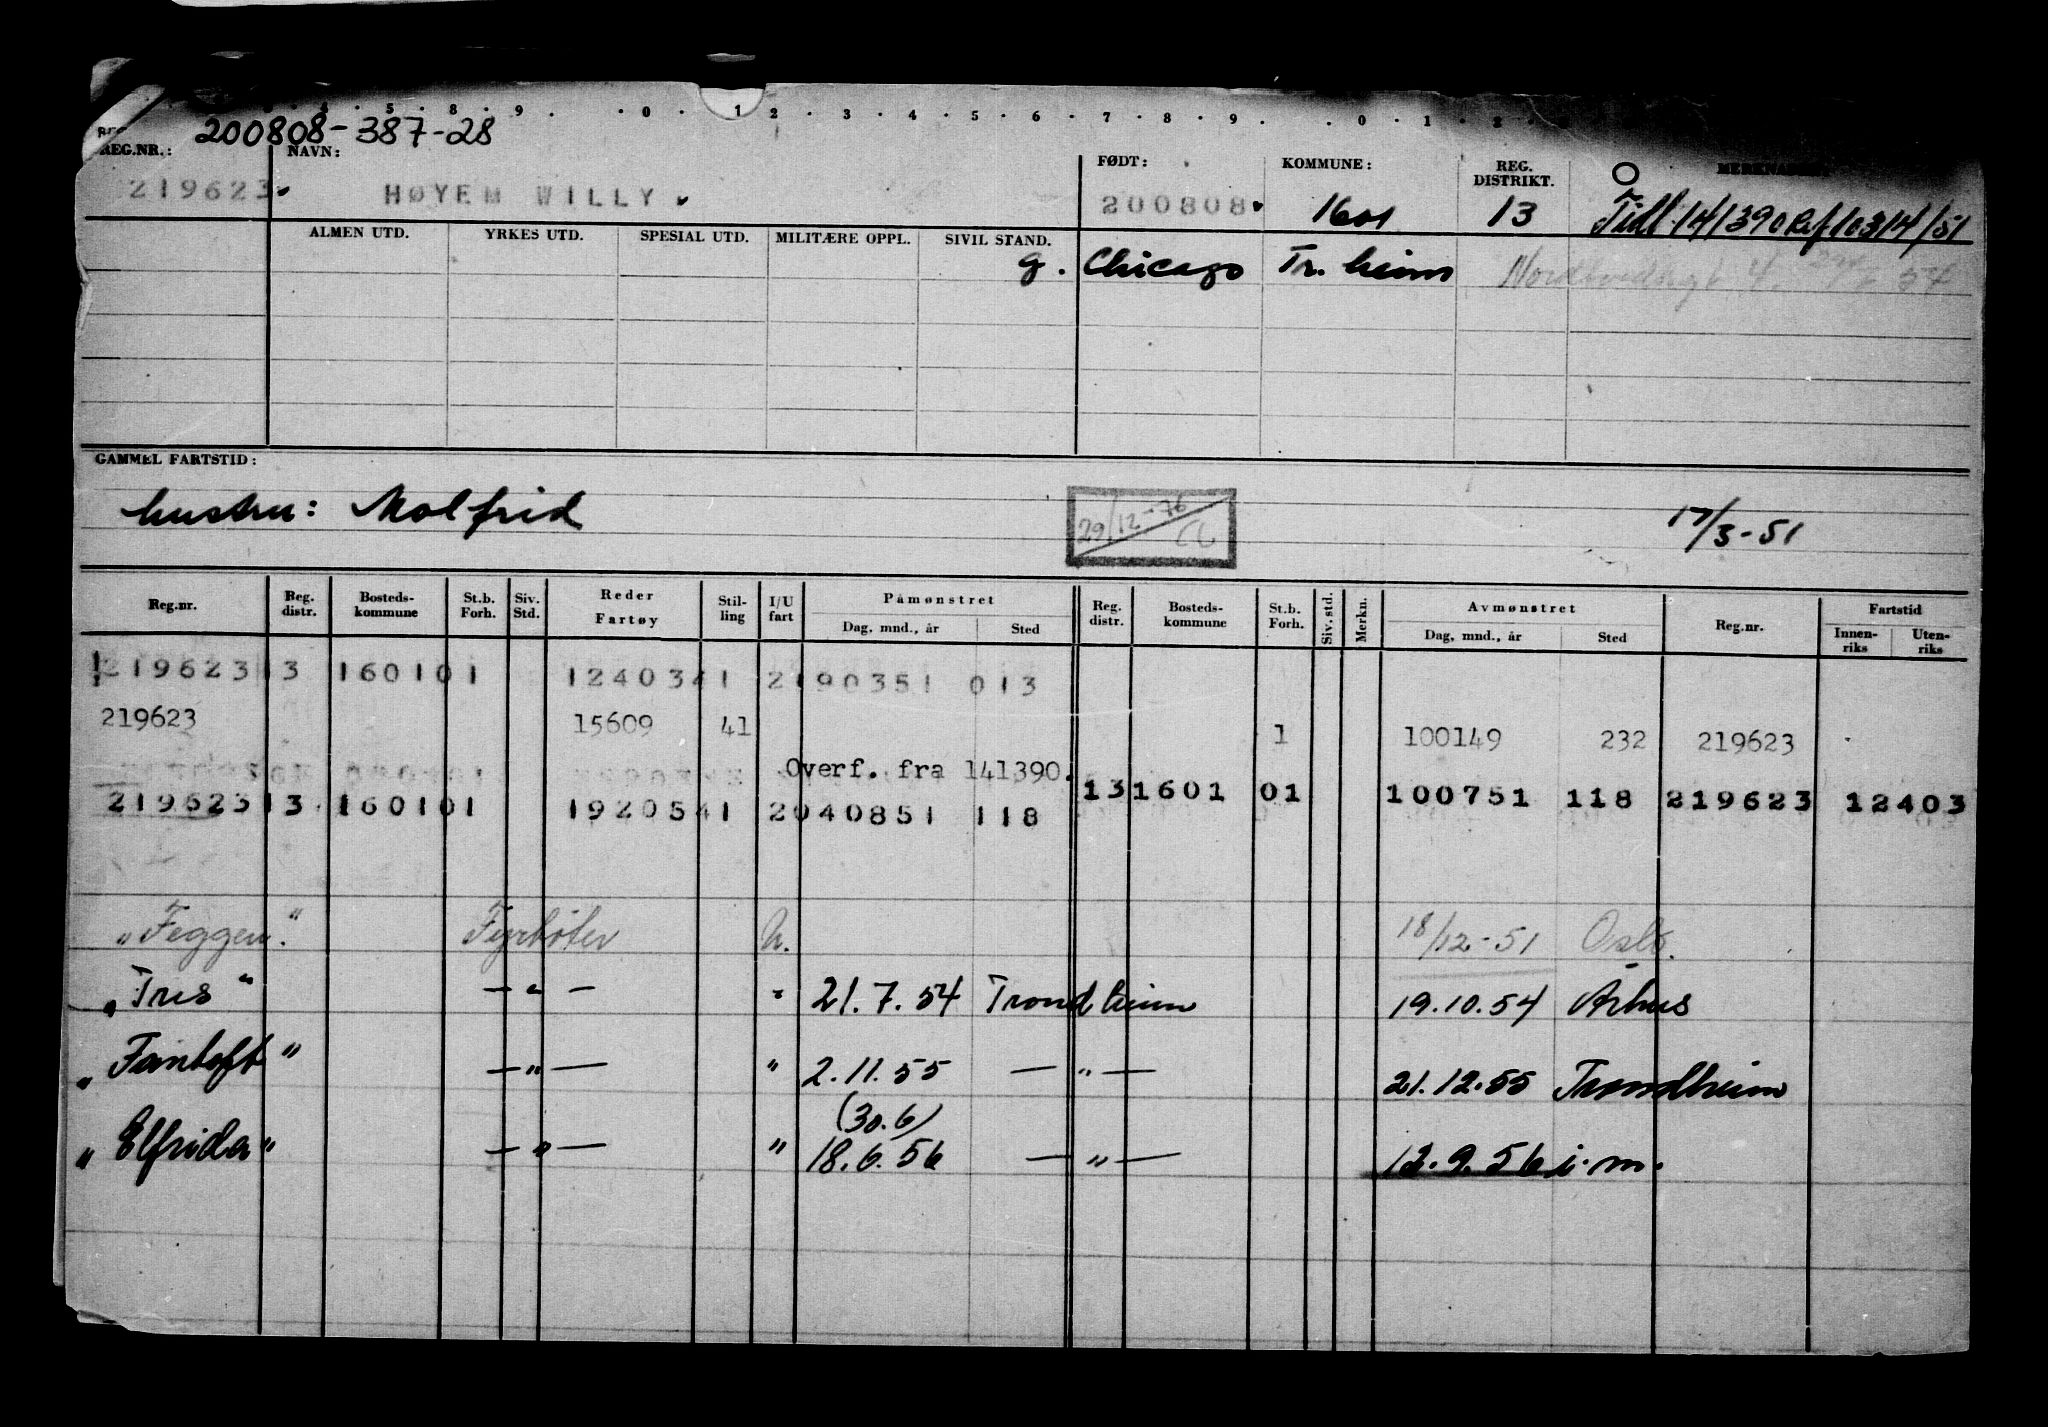 4 . 5 . 8 . 9 . . 0 . 1 2 . 3 . 4 . 5 . 6 . 7 . 8 . 9 . . 0 . 1
200808-387-28
REG.NR.: NAVN: FØDT: KOMMUNE: REG. DISTRIKT.
219623 HØYEM WILLY 200808 1601 13 Tidl. 141390 Ref 10314/51
ALMEN UTD. YRKES UTD. SPESIAL UTD. MILITÆRE OPPL. SIVIL STAND.
g. Chicago Tr. heim
GAMMEL FARTSTID:
hustru: Malfrid 29/12-76 17/3-51
Reg.nr. Reg. distr. Bosteds-kommune St.b. Forh. Siv. Std. Reder Fartøy Stil-ling I/U fart Påmønstret Reg. distr. Bosteds-kommune St.b. Forh. Siv. std. Merkn. Avmønstret Reg.nr. Fartstid
Dag, mnd., år Sted Dag, mnd., år Sted Innen-riks Uten-riks
219623 13 1601 01 12403 41 2 190351 013
219623 15609 41 1 100149 232 219623
Overf. fra 141390.
219623 13 1601 01 19205 41 2 040851 118 13 1601 01 100751 118 219623 12403
"Feggen." Fyrbøter U. 18/12-51 Oslo.
"Tres" — " — " 21.7.54 Trondheim 19.10.54 Århus
"Fantoft" — " — " 2.11.55 — " — 21.12.55 Trondheim
(30.6)
"Elfrida" — " — " 18.6.56 — " — 12.9.56 i.m.